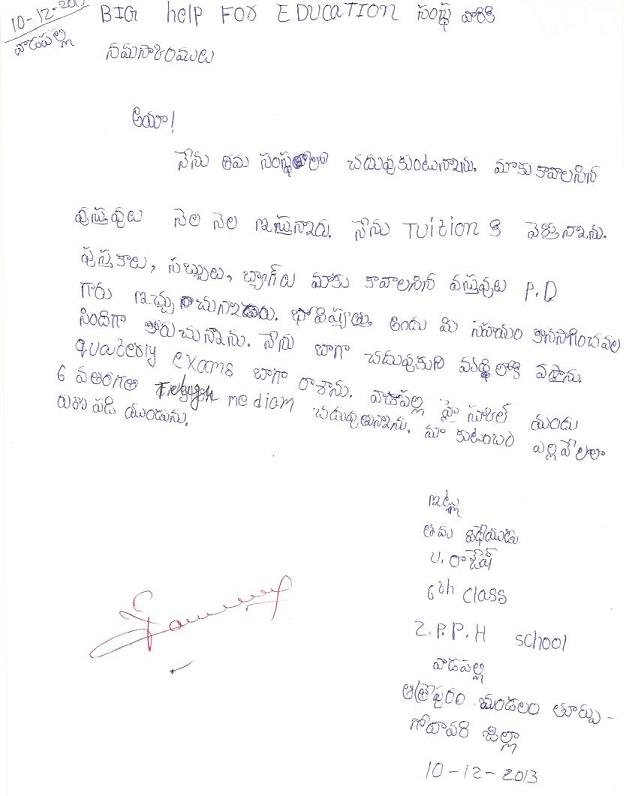 10-12-2013
వాడపల్లి
BIG help FOR EDUCATION సంస్థ వారికి
నమస్కారములు
అయా!
నేను తమ సంస్థలో చదువుకుంటున్నాను. మాకు కావాలసిన
వస్తువులు నెల నెల ఇస్తున్నారు. నేను TUition కి వెళ్తున్నాను.
పుస్తకాలు, సబ్బులు, బ్యాగ్లు మాకు కావాలసిన వస్తువులు P.D
గారు ఇచ్చుచున్నారు. భవిష్యత్తు అందు మి సహయం కొనసాగించవల
సిందిగా కోరుచున్నాను. నేను బాగా చదువుకుని వృద్ధిలోకి వస్తాను
quaterly exams బాగా రాశాను. వాడపల్లి హై స్కూల్ నందు
6 వతరగతి Telugu mediam చదువుతున్నాను. మా కుటుంబం ఎల్లవేలలా
రుణ పడి యుండును.
ఇట్లు
తమ విధేయుడు
U. రాజేష్
6th class
Z.P.P.H school
వాడపల్లి
ఆత్రేపురం మండలం తూర్పు -
గోదావరి జిల్లా
10-12-2013